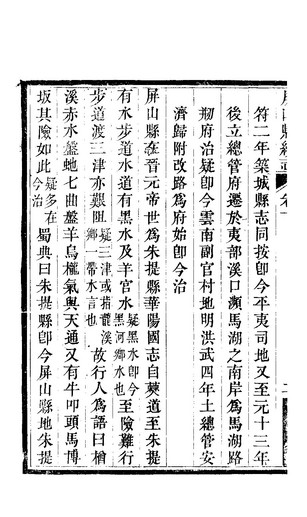 符二年築城縣志同按卽今平夷司地又至元十三年
後立總管府遷於夷部溪口瀕馬湖之南岸爲馬湖路
刱府治疑卽今雲南副官村地明洪武四年土總管安
濟歸附改路爲府始卽今治
屏山縣在晉元帝世爲朱提縣華陽國志自僰道至朱提
有水步道水道有黑水及羊官水疑黑水卽今黑河鄉水也至險難行
步道渡三津亦艱阻疑三津或指龍溪鄉一帶水言也故行人爲語曰楢
溪赤水盤虵七曲盤羊烏櫳氣與天通又有牛叩頭馬博
坂其險如此疑多在今治蜀典曰朱提縣卽今屏山縣地朱提